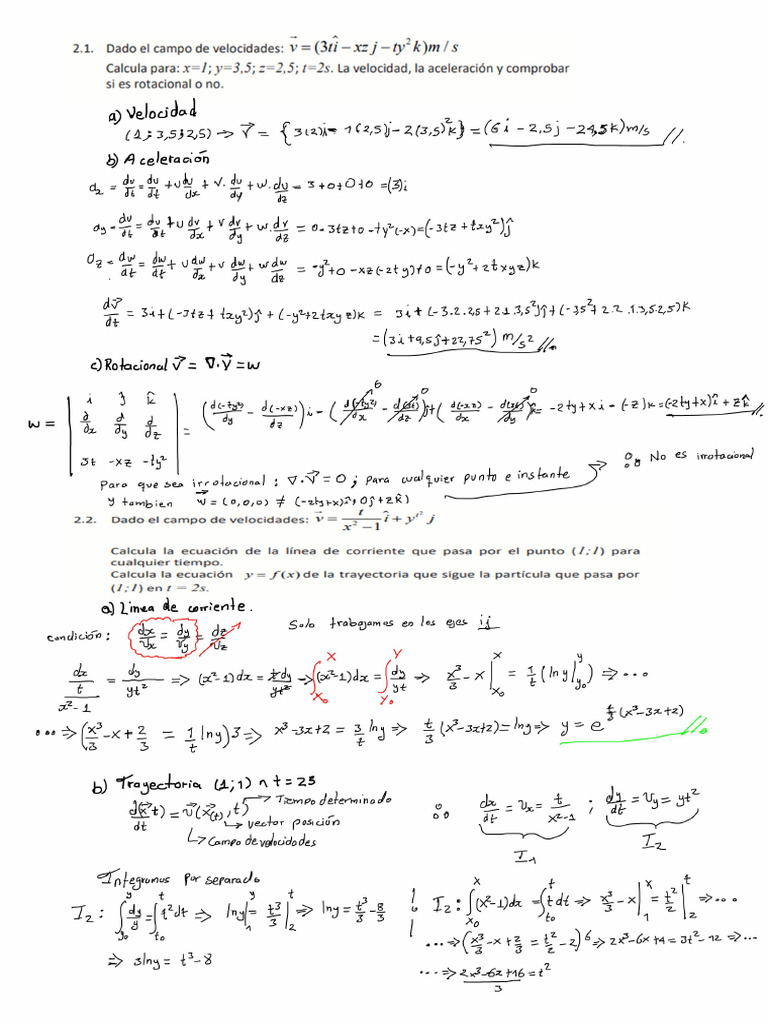 2.1. Dado el campo de velocidades: v⃗ = (3tî − xz j − ty² k) m / s
Calcula para: x=1; y=3,5; z=2,5; t=2s. La velocidad, la aceleración y comprobar
si es rotacional o no.
a) Velocidad
(1; 3,5; 2,5) → V⃗ = {3(2)i − 1(2,5)j − 2(3,5)²k} = (6i − 2,5j − 24,5k) m/s
b) Aceleración
ax = du/dt = du/dt + u du/dx + v. du/dy + w. du/dz = 3+0+0+0 = (3)i
ay = dv/dt = dv/dt + u dv/dx + v dv/dy + w. dv/dz = 0 − 3tz + 0 − ty²(−x) = (−3tz + txy²)ĵ
az = dw/dt = dw/dt + u dw/dx + v dw/dy + w dw/dz = −y² + 0 − xz(−2ty) + 0 = (−y² + 2txyz)k
dv⃗/dt = 3i + (−3tz + txy²)ĵ + (−y² + 2txyz)k = 3i + (−3.2.2,5 + 2.1.3,5²)ĵ + (−3,5² + 2.2.1.3,5.2,5)k
= (3i + 9,5ĵ + 22,75²) m/s²
c) Rotacional V⃗ = ∇·V⃗ = w
w = | i j k̂ ; ∂/∂x d/dy d/dz ; 3t −xz −ty² | = (d(−ty²)/dy − d(−xz)/dz)i − (d(−ty²)/dx − d(3t)/dz)j + (d(−xz)/dx − d(3t)/dy)k = −2ty + xi − (−z)k = (−2ty+x)î + zk̂
0 0 0
Para que sea irrotacional: ∇·V⃗ = 0; para cualquier punto e instante → ∴ No es irrotacional
y tambien w⃗ = (0,0,0) ≠ (−2ty+x)î, 0ĵ + zk̂)
2.2. Dado el campo de velocidades: v⃗ = t/(x² − 1) î + y^t² j
Calcula la ecuación de la línea de corriente que pasa por el punto (1;1) para
cualquier tiempo.
Calcula la ecuación y = f(x) de la trayectoria que sigue la partícula que pasa por
(1;1) en t = 2s.
a) Linea de corriente.
condición: dx/Vx = dy/Vy = dz/Vz Solo trabajamos en los ejes ij
dx/(t/(x²−1)) = dy/yt² ⇒ (x²−1)dx = t dy/yt² ⇒ ∫x₀^x (x²−1)dx = ∫y₀^y dy/yt ⇒ x³/3 − x |x₀^x = 1/t (ln y|y₀^y) ⇒ ...
... ⇒ (x³/3 − x + 2/3 = 1/t ln y)3 ⇒ x³−3x+2 = 3/t ln y ⇒ t/3 (x³−3x+2) = ln y ⇒ y = e^(t/3 (x³−3x+2))
b) Trayectoria (1;1) ∩ t = 2s
d(x⃗t)/dt = v⃗(x⃗(t), t) → Tiempo determinado
→ vector posición
→ Campo de velocidades
∴ dx/dt = Vx = t/(x²−1) ; dy/dt = Vy = yt²
I₁ I₂
Integramos por separado
I₂: ∫y₀^y dy/y = ∫t₀^t t² dt ⇒ ln y|₁^y = t³/3|₂^t ⇒ ln y = (t³−8)/3
⇒ 3 ln y = t³ − 8
I₂: ∫x₀^x (x²−1)dx = ∫t₀^t t dt ⇒ x³/3 − x|₁^x = t²/2|₂^t ⇒ ...
... ⇒ (x³/3 − x + 2/3 = t²/2 − 2)6 ⇒ 2x³−6x+4 = 3t²−12 ⇒ ...
... ⇒ (2x³−6x+16)/3 = t²